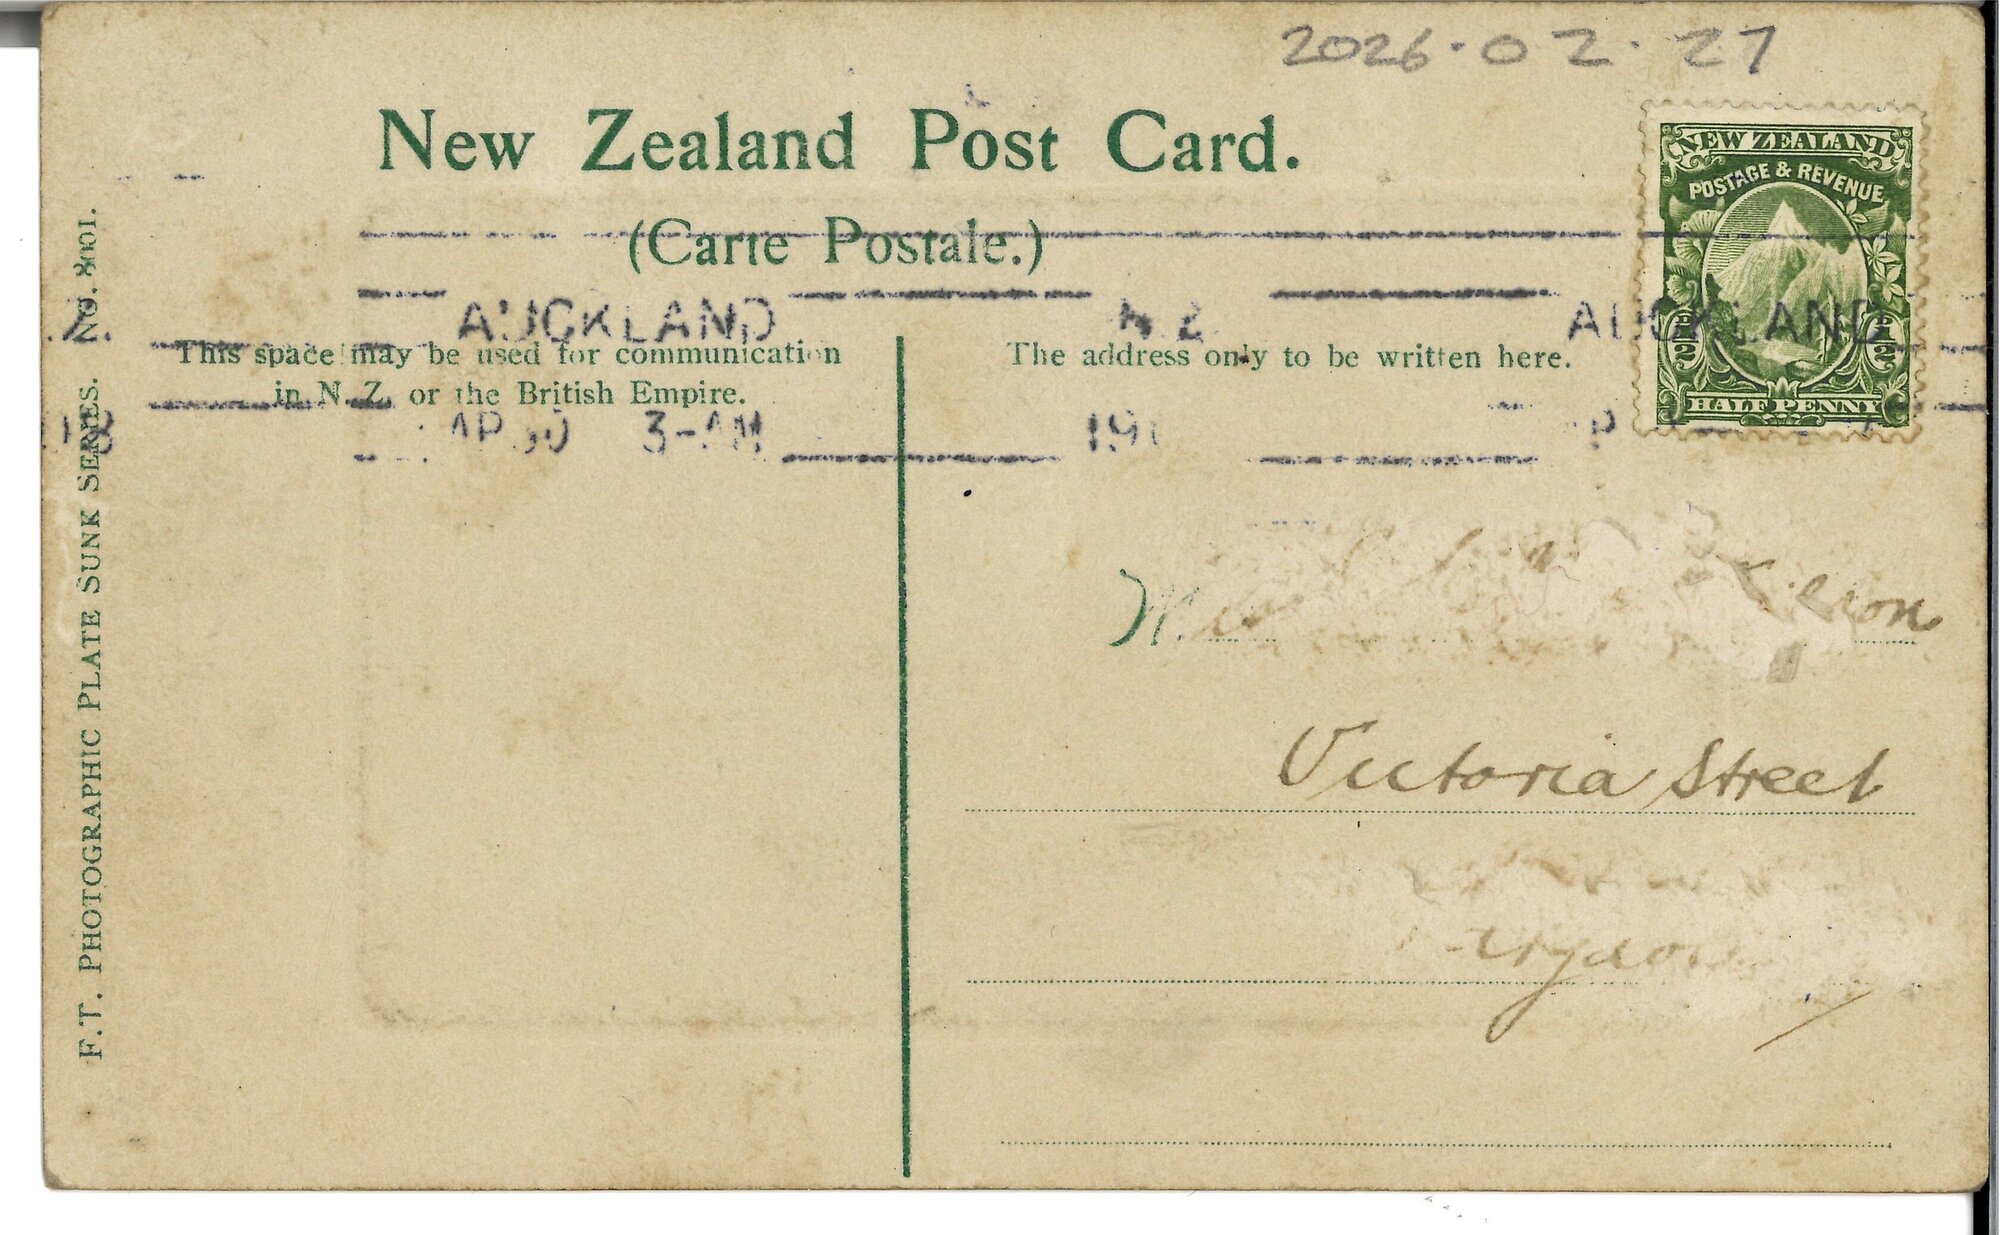 2026·02·27
New Zealand Post Card.
(Carte Postale.)
NEW ZEALAND
POSTAGE & REVENUE
1/2 1/2
HALF PENNY
AUCKLAND
N Z
AUCKLAND
This space may be used for communication
in N. Z. or the British Empire.
The address only to be written here.
3-AM
F.T. PHOTOGRAPHIC PLATE SUNK SERIES. NO. 8001.
Victoria Street